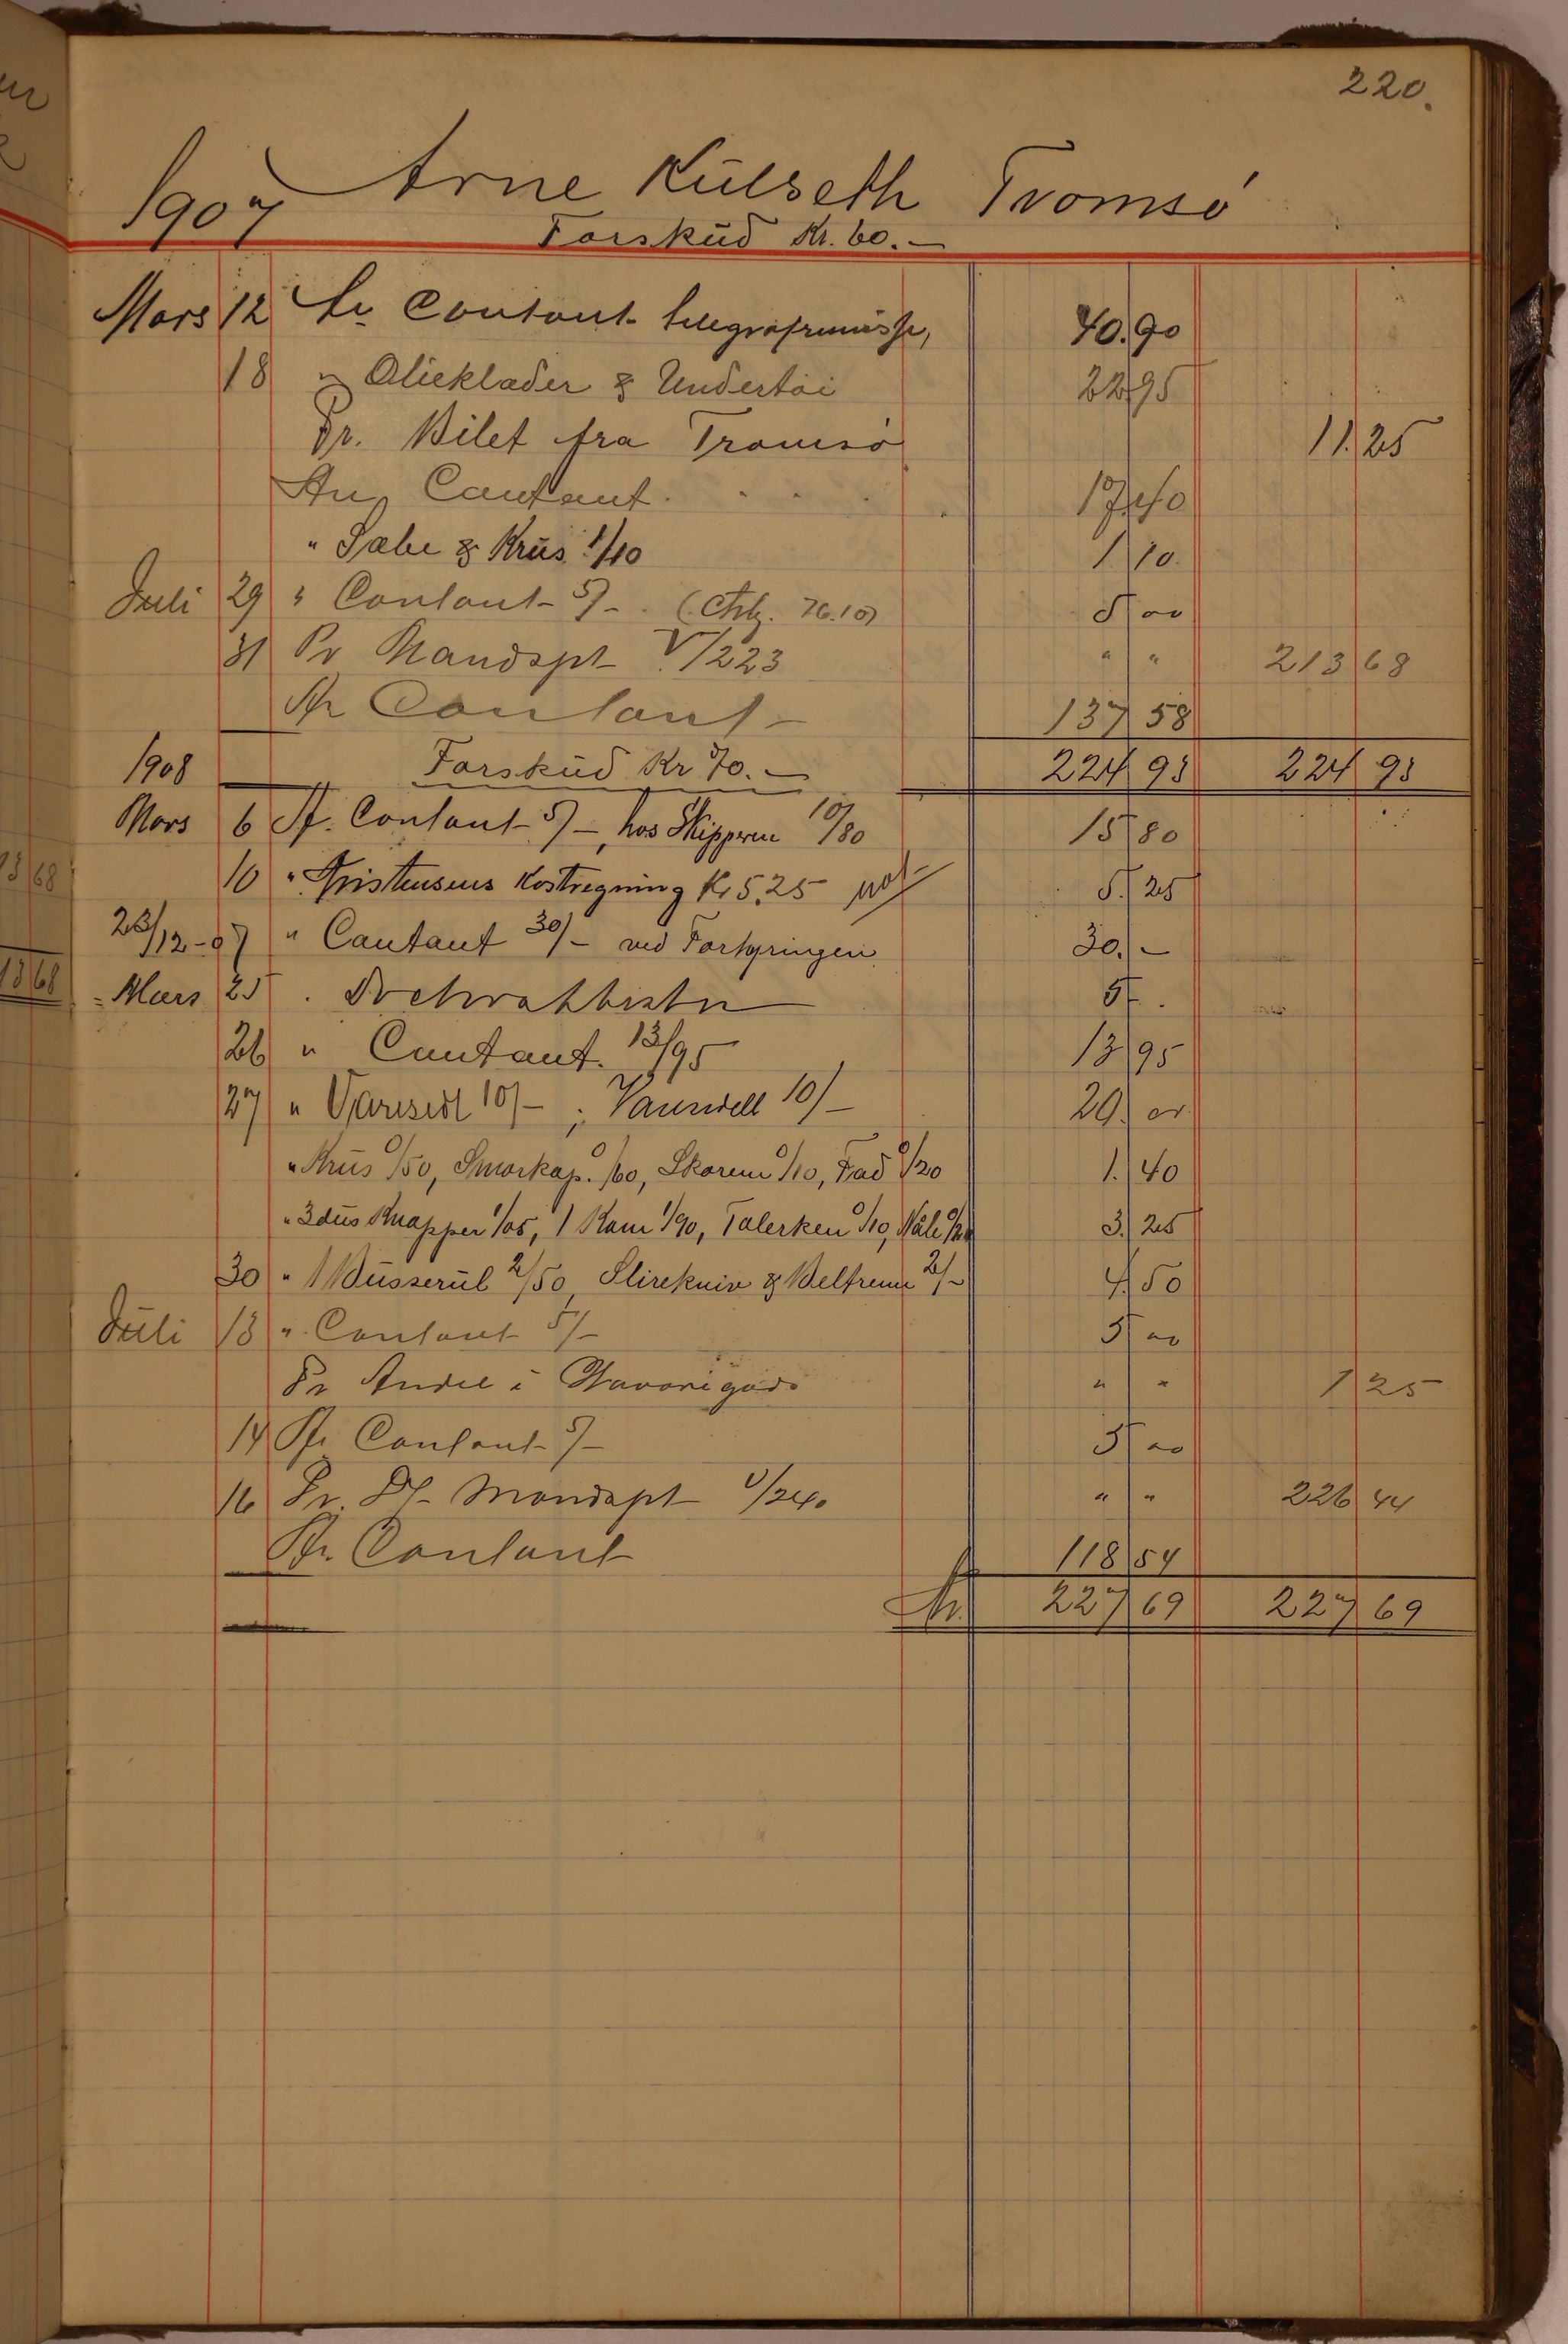 220.
1907 Arne Kulseth Tromsö
Forskud Kr. 60.-
Mars 12 An Contant 40.90
18 " Olieklæder & Undertöi 22 95
Pr. Bilet fra Tromsö 11.25
An Contant 17,40
" Sæbe & Krus 1/10 1.10
Juli 29 " Contant 5/- (76.10) 5 00
31 Pr Mandspt V/223 " " 213 68
An Contant 137 58
1908 Forskud Kr 70.- 224 93 224 93
Mars 6 An Contant 5/-, hos Skipperen 10/80 15 80
10 " Kristensens Kostregning Kr 5.25 5.25
23/12-07 " Contant 30/- ved Forhyringen 30.-
Mars 25 " 5 -
26 " Contant 13/95 13 95
27 " Varesedl 10/-; 10/- 20. 00
" Krus 0/50, Smörkop. 0/60, Skorem 0/10, Fad 0/20 1.40
" 3 dus Knapper 1/05, 1 Kam 1/90, Talerken 0/10, Nåle 0/20 3.25
30 " 1 Busserul 2/50, Slirekniv & Beltrem 2/- 4.50
Juli 13 " Contant 5/- 5 00
Pr Andel i Havarigods " " 1 25
14 An Contant 5/- 5 00
16 Pr. Mandspt V/240 " " 226 44
An Contant 118 54
Kr. 227 69 227 69
13 68
13 68